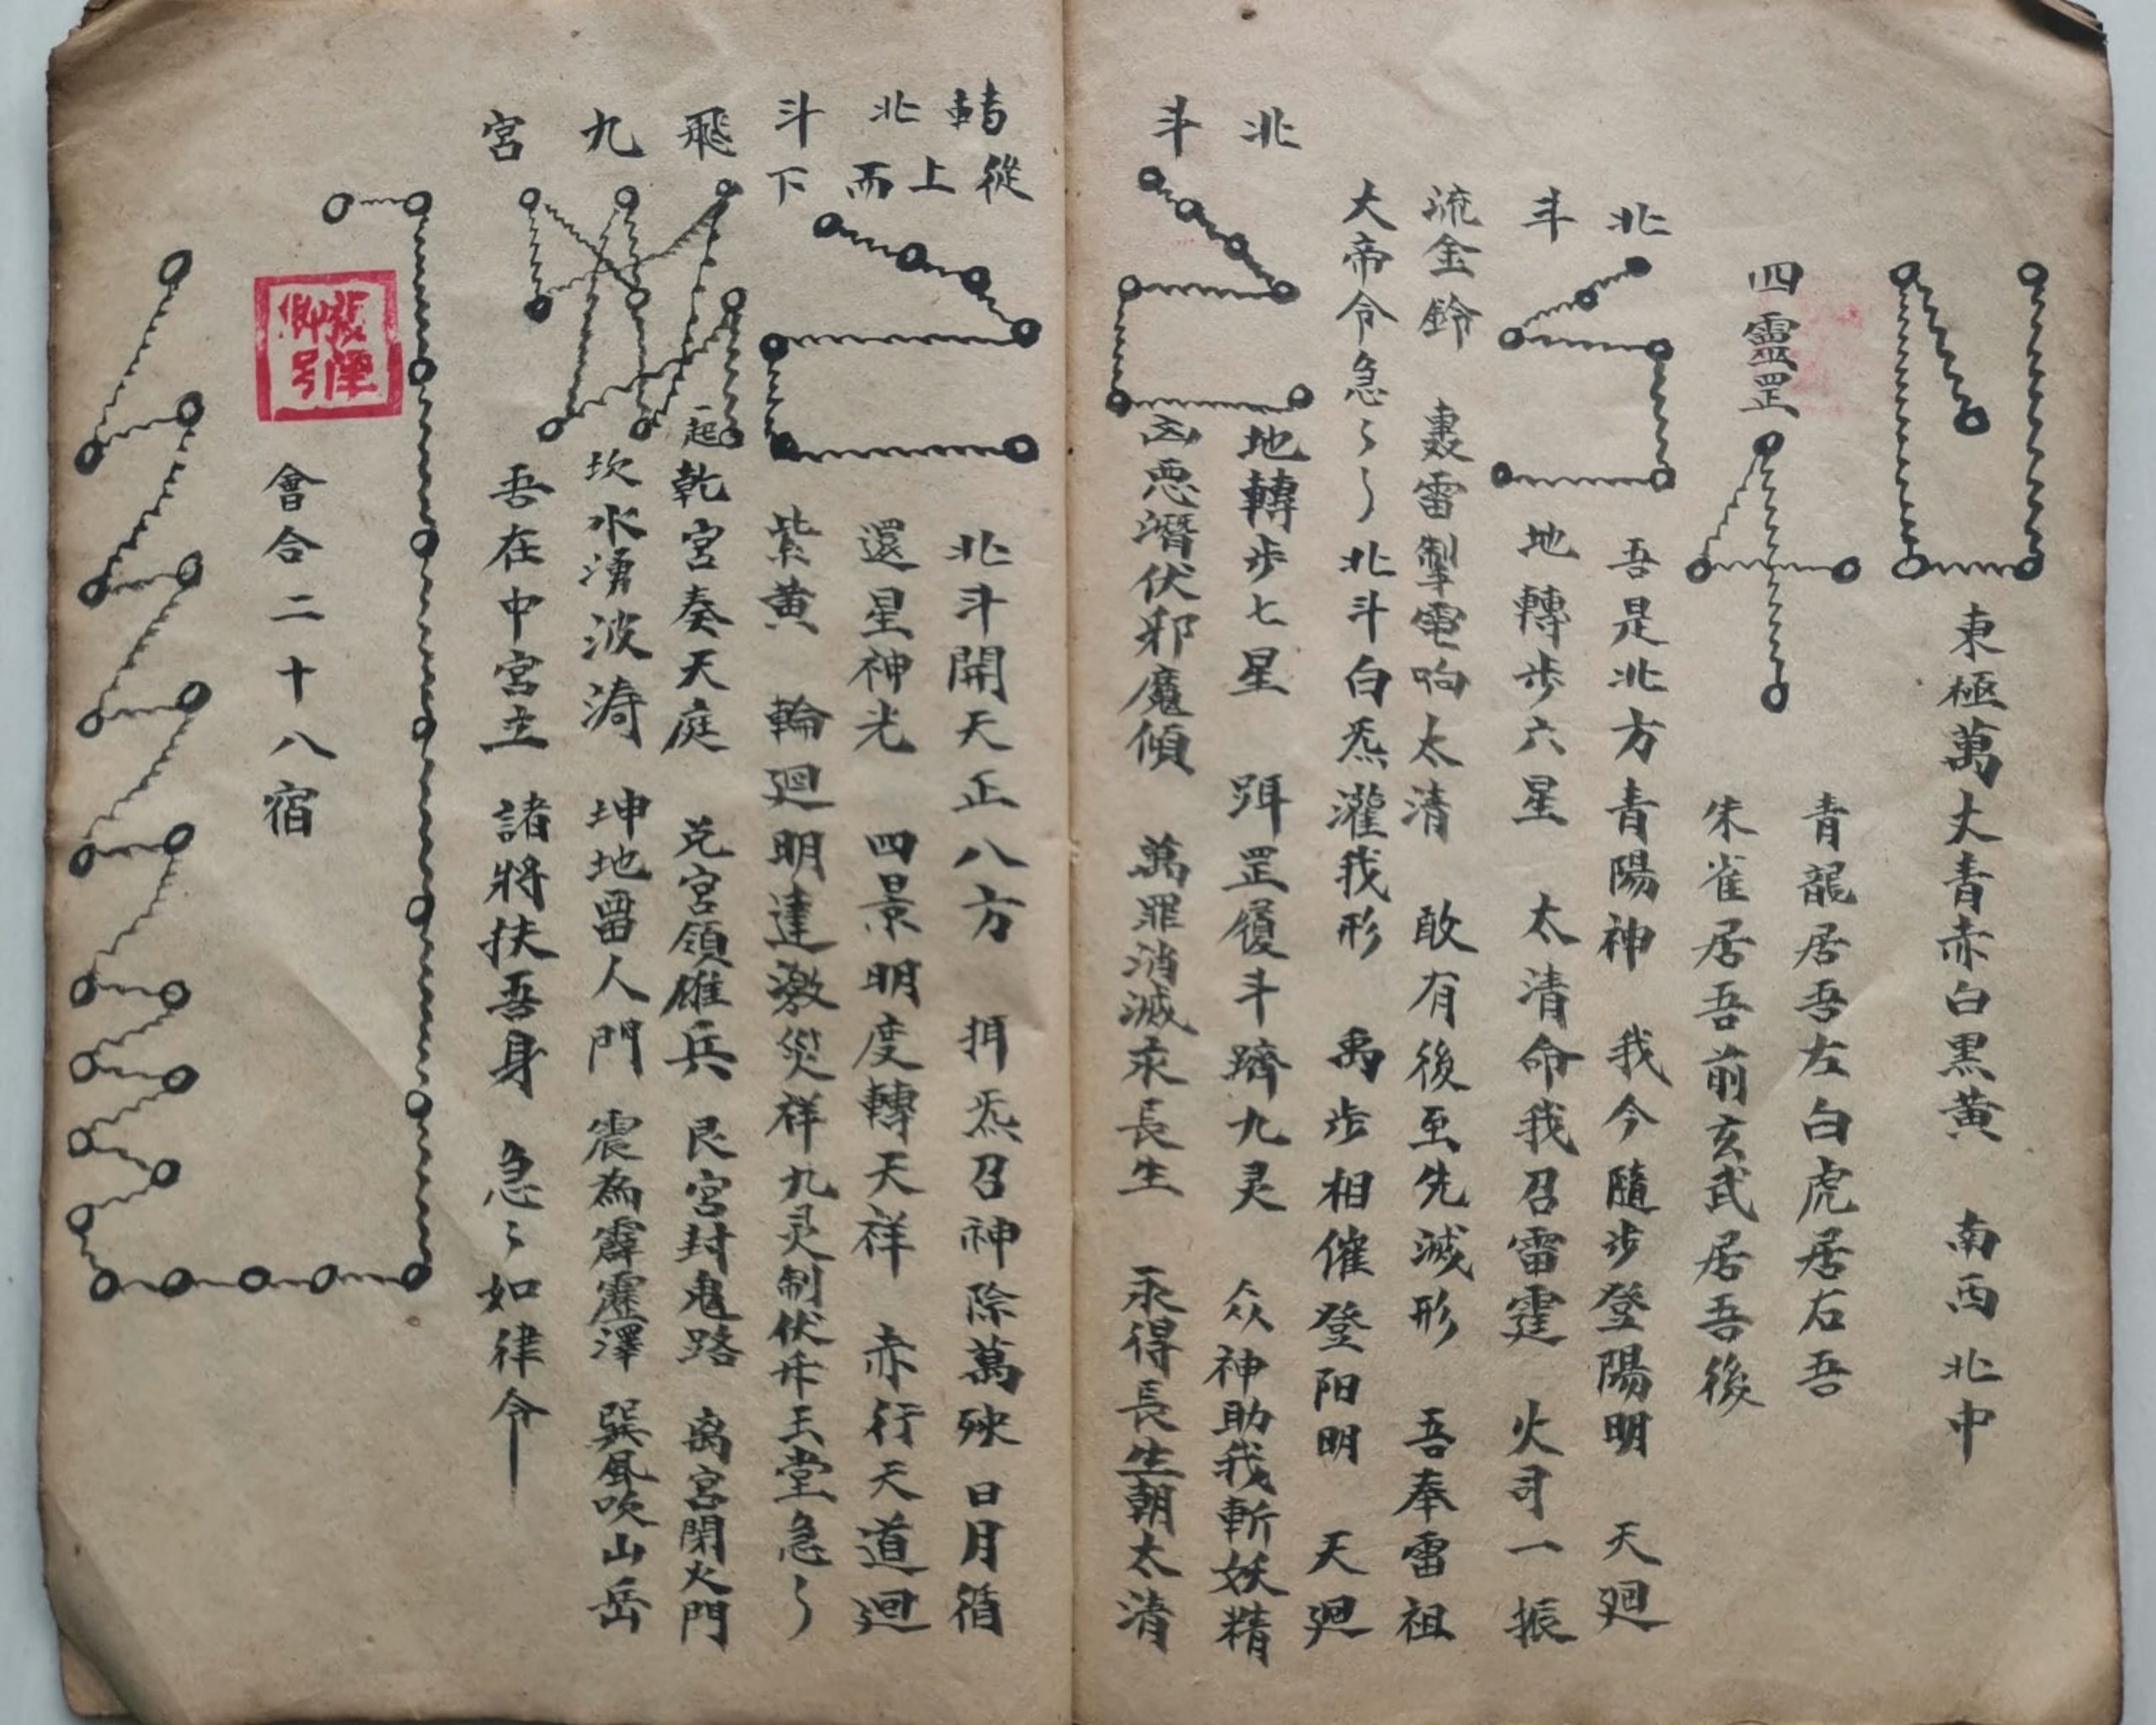 東極萬丈青赤白黑黄 南西北中
青龍居吾左白虎居右吾
四靈罡
朱雀居吾前玄武居吾後
北
吾是北方青陽神 我今隨步登陽明 天廻
斗
地轉步六星 太清命我召雷霆 火司一振
流金鈴 轟雷掣電响太清 敢有後至先滅形 吾奉雷祖
大帝令急〻〻北斗白炁灌我形 禹步相催登阳明 天廻
北
地轉步七星 躡罡履斗躋九灵 众神助我斬妖精
斗
凶悪潛伏邪魔傾 萬罪消滅永長生 永得長生朝太清
轉從
北斗開天正八方 炁召神除萬殃 日月循
北上而
還星神光 四景明度轉天祥 赤行天道廻
斗下
紫黄 輪廻明達激災祥九灵制伏玉堂急〻
飛
起乾宮奏天庭 兑宮領雄兵 艮宮封鬼路 离宮閉火門
九
坎水湧波濤 坤地留人門 震為霹靂澤 巽風吹山岳
宮
吾在中宮立 諸將扶吾身 急〻如律令
會合二十八宿